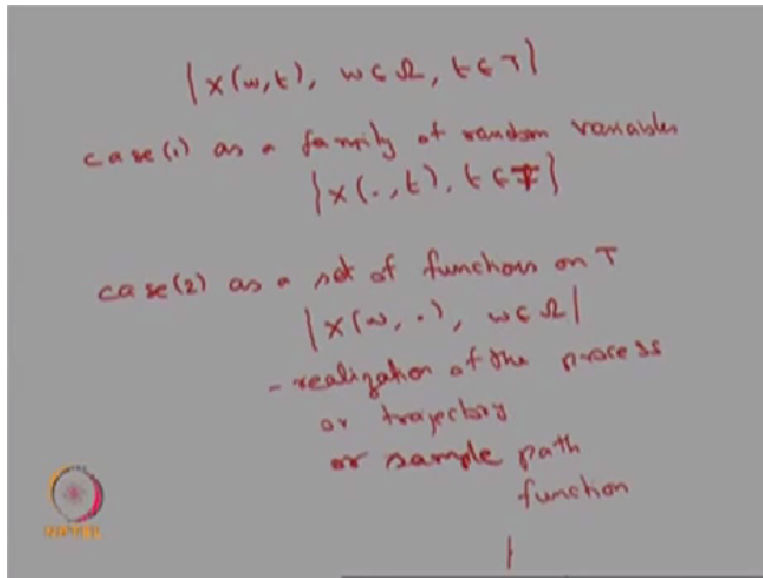 {X(w,t), w∈Ω, t∈T}
case(1) as a family of random variables
{X(.,t), t∈T}
case(2) as a set of functions on T
{X(w,.), w∈Ω}
- realization of the process
or trajectory
or sample path
function
NPTEL